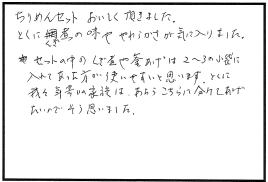 ちりめんセット おいしく頂きました。
とくに 煮の味や やわらかさが気に入りました。
* セットの中の くぎ煮や釜あげは 2～3の小袋に
入れてあった方が使いやすいと思います。とくに
我々年寄り家族は、あちらこちらに分けてあげ
たいので そう思いました。